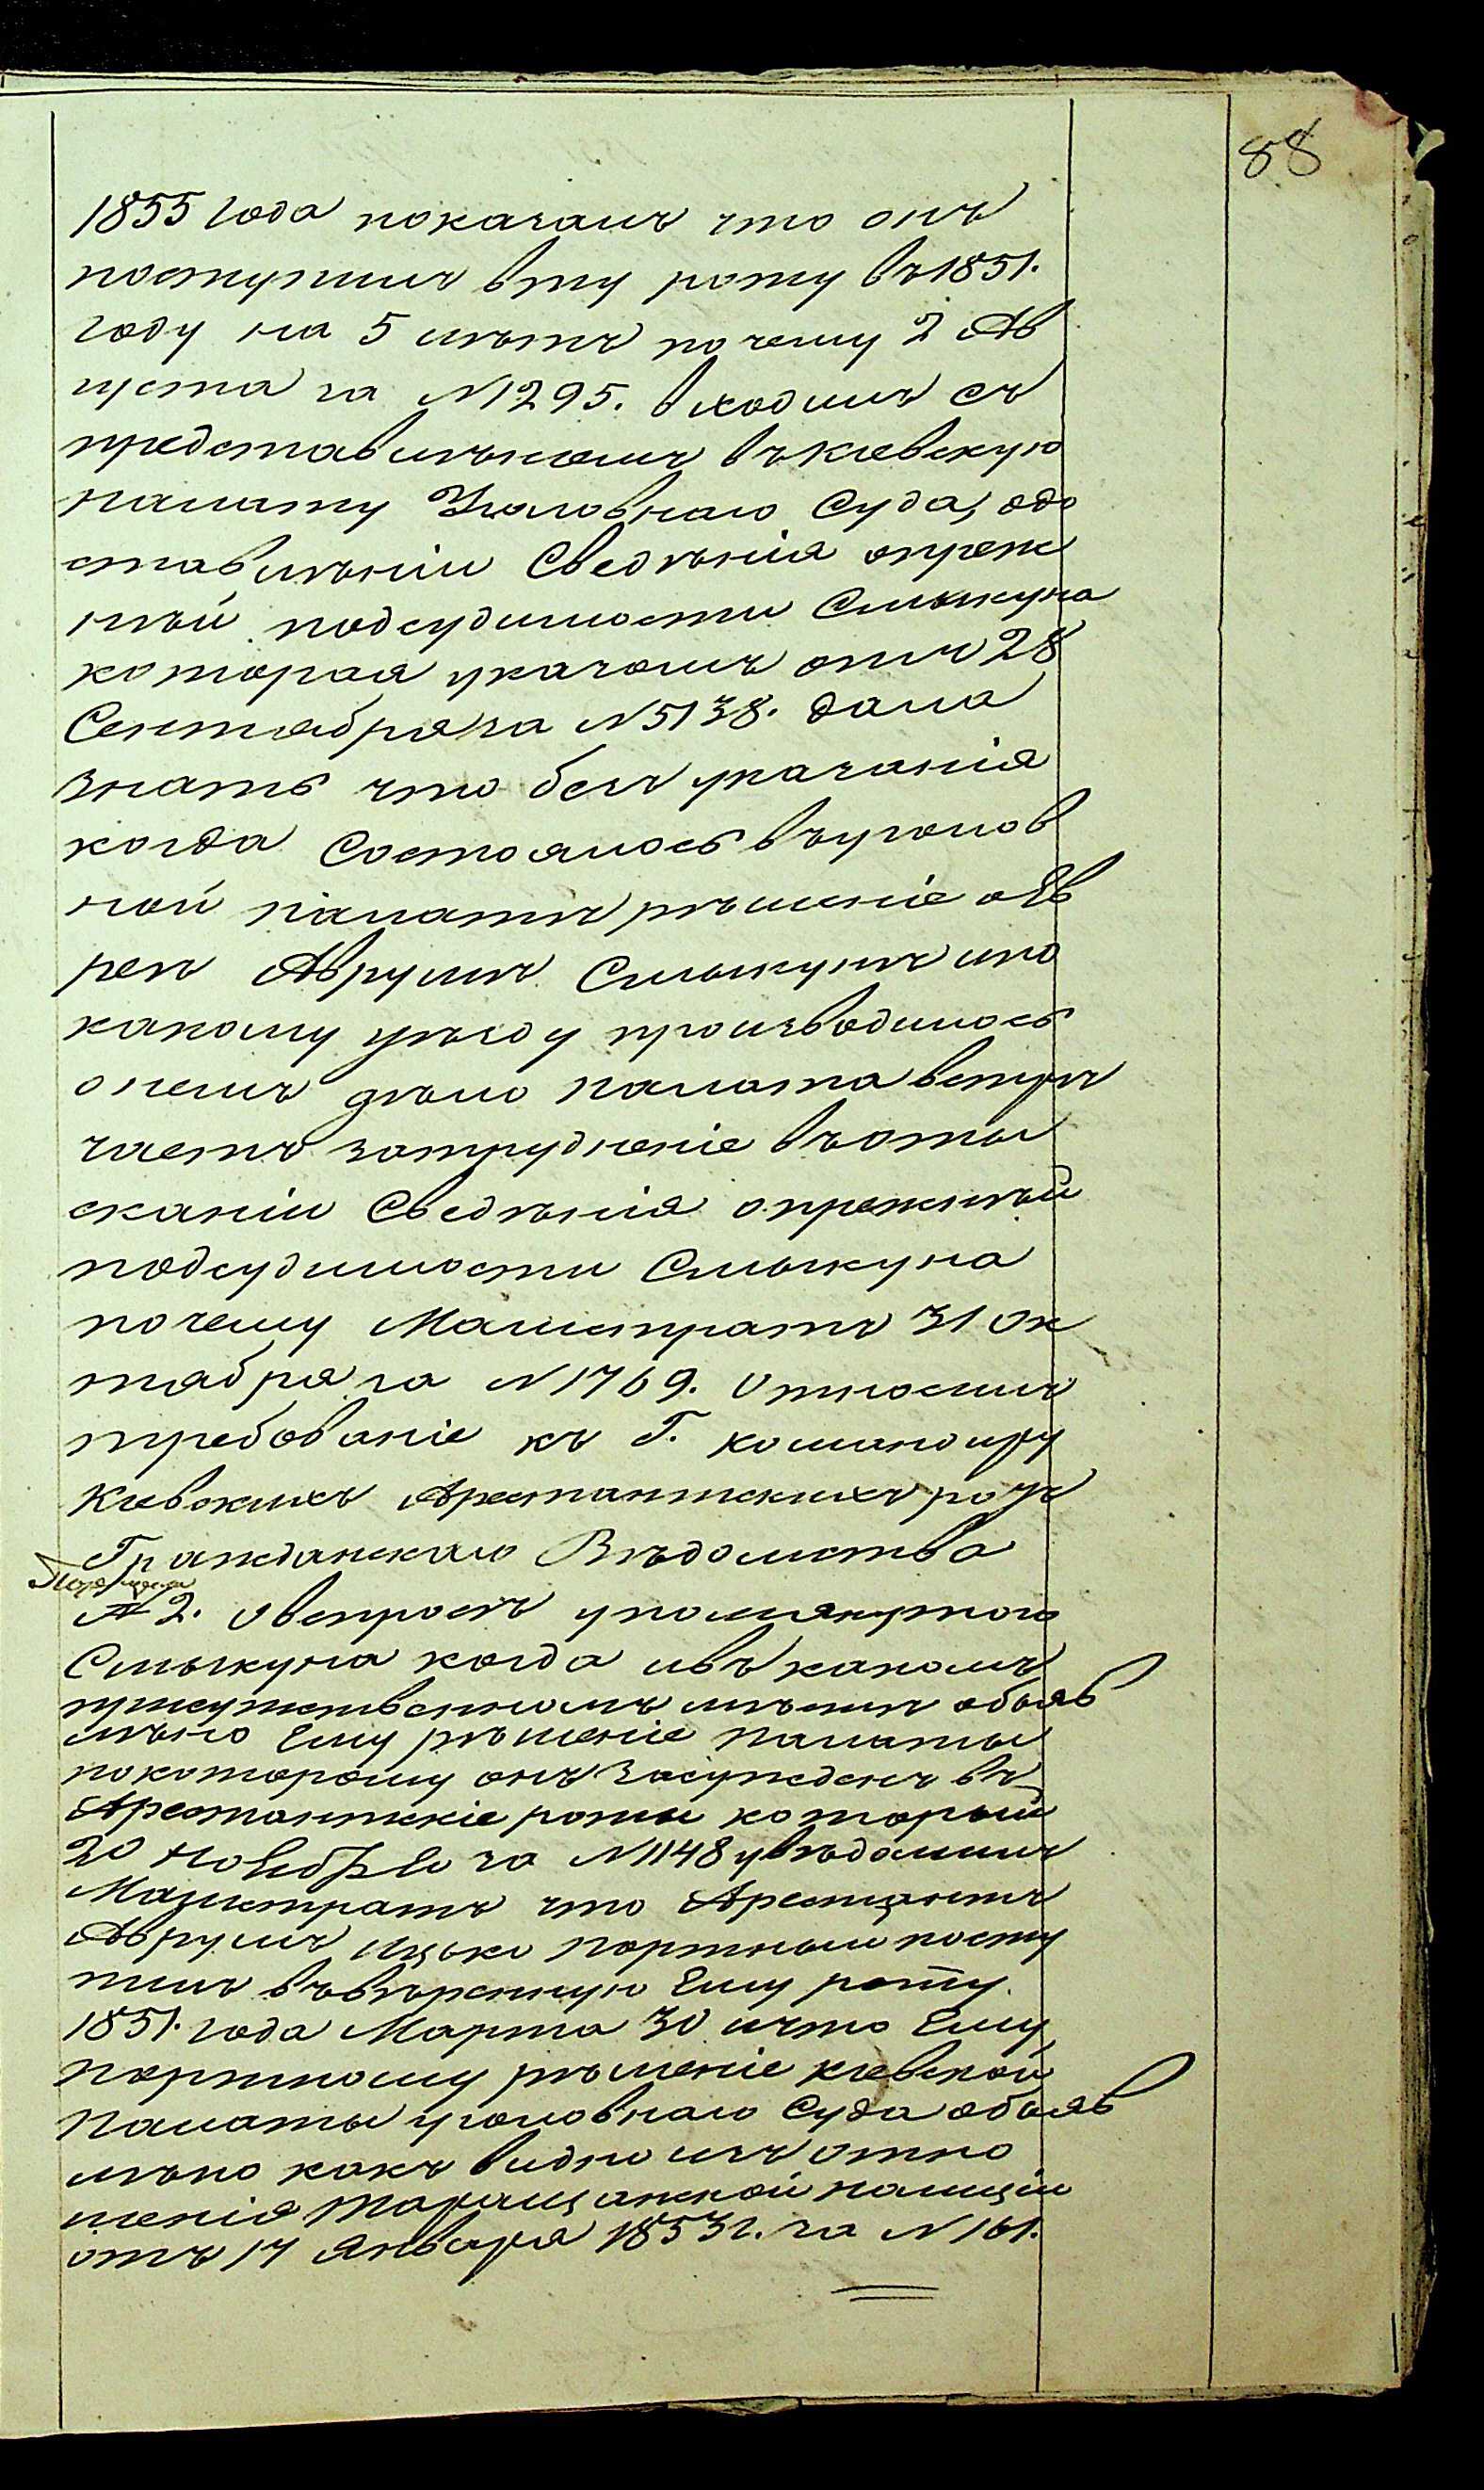 88
1855 года показалъ что онъ
поступилъ вту роту въ1851.
году на 5 лѣтъ почему 2 Ав
густа за N1295. входилъ съ
представлѣниемъ въкиевскую
палату Уголовнаго Суда, одо
ставлѣнiи Сведѣнiя опреж
нѣй подсудимости Смыкуна
которая указомъ отъ 28
Сентября за N5138. дала
знать что безъ указанiя
когда Состоялось въуголов
ной палатѣ рѣшенiе оЕв
реѣ Аврумѣ Смыкунѣ ипо
какому уѣзду производилось
онемъ дѣло палата встрѣ
чаетъ затрудненiе въоты
сканiи Сведѣнiя опрежнѣй
подсудимости Смыкуна
почему Магистратъ 31 Ок
тября за N1769. Относилъ
требованiе къ Г. командиру
Киевскихъ Арестантскихъ ротъ
Гражданскаго Вѣдомства
№ 2. овспросѣ упомянутого
Смыкуна когда ивъ какомъ
присутственномъ мѣстѣ объяв
лѣно Ему рѣшенiе палаты
покоторому онъ засужденъ въ
Арестантскiе роты который
20 Ноября за N1148 увѣдомилъ
Магистратъ что Арестантъ
Аврумъ Ицько Портный посту
пилъ въввѣренную Ему роту.
1851. года Марта 30 ичто Ему
Портному рѣшенiе киевской
Палаты уголовнаго Суда объяв
лѣно какъ видно изъ отно
шенiя Таращанской полицiи
отъ 17 Января 1853г. за N 161.